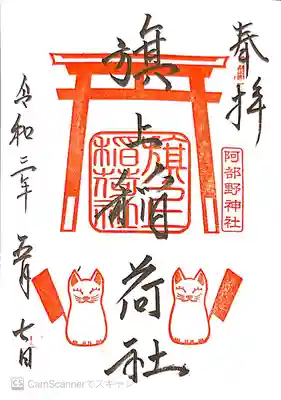 奉拝
阿部野神社
旗上稲荷社
旗上稲荷社
令和二年五月七日
CS CamScannerでスキャン